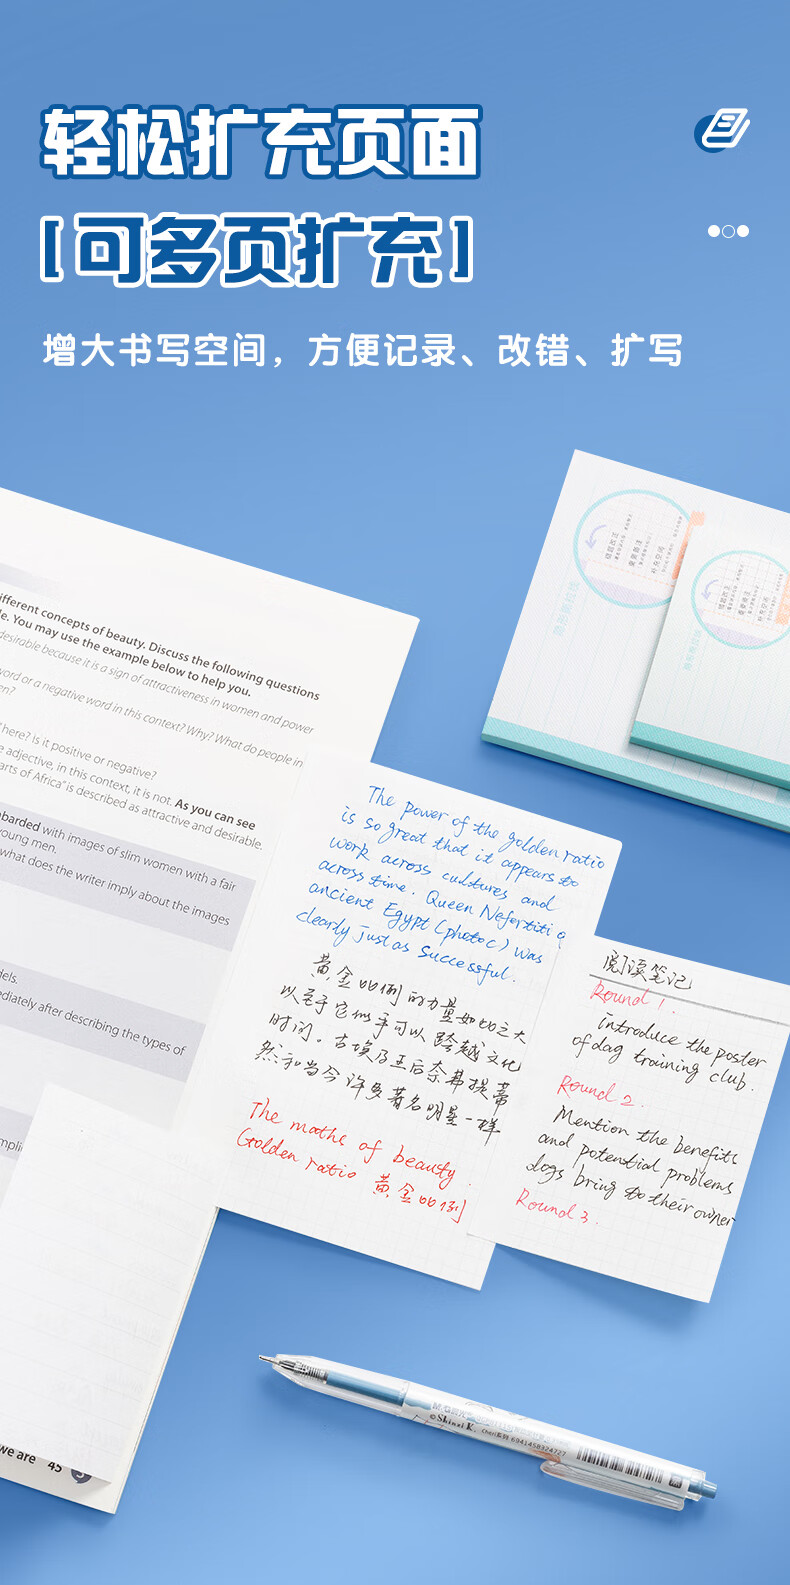 轻松扩充页面
[可多页扩充]
增大书写空间，方便记录、改错、扩写
ifferent concepts of beauty. Discuss the following questions
le. You may use the example below to help you.
desirable because it is a sign of attractiveness in women and power
word or a negative word in this context? Why? What do people in
en?
here? Is it positive or negative?
e adjective, in this context, it is not. As you can see
arts of Africa" is described as attractive and desirable.
mbarded with images of slim women with a fair
young men.
what does the writer imply about the images
dels.
ediately after describing the types of
we are 45
The power of the golden ratio
is so great that it appears to
work across cultures and
across time. Queen Nefertiti
ancient Egypt (photo c) was
clearly just as successful.
黄金比例的力量如此之大
以至于它似乎可以跨越文化
时间。古埃及王后奈弗提蒂
然和当今许多著名明星一样
The maths of beauty.
Golden ratio 黄金比例
阅读笔记
Round 1.
introduce the poster
of dag training club.
Round 2.
Mention the benefits
and potential problems
dogs bring to their owner
Round 3.
错题改正
重要备注
补充空间
错题改正
重要备注
补充空间
©Shinzi K.
6941458324727